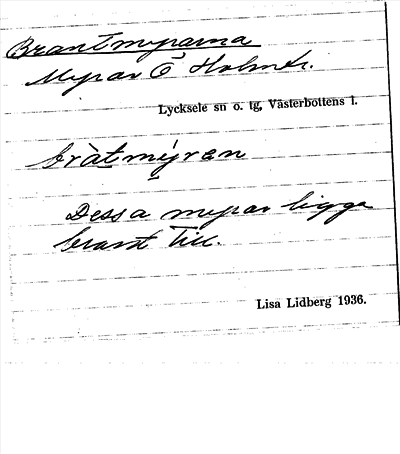 Brantmyrarna
Myrar Ö Holmtr.
Lycksele sn o. tg, Västerbottens l.
bràtmýran
Dessa myrar ligga
brant till.
Lisa Lidberg 1936.